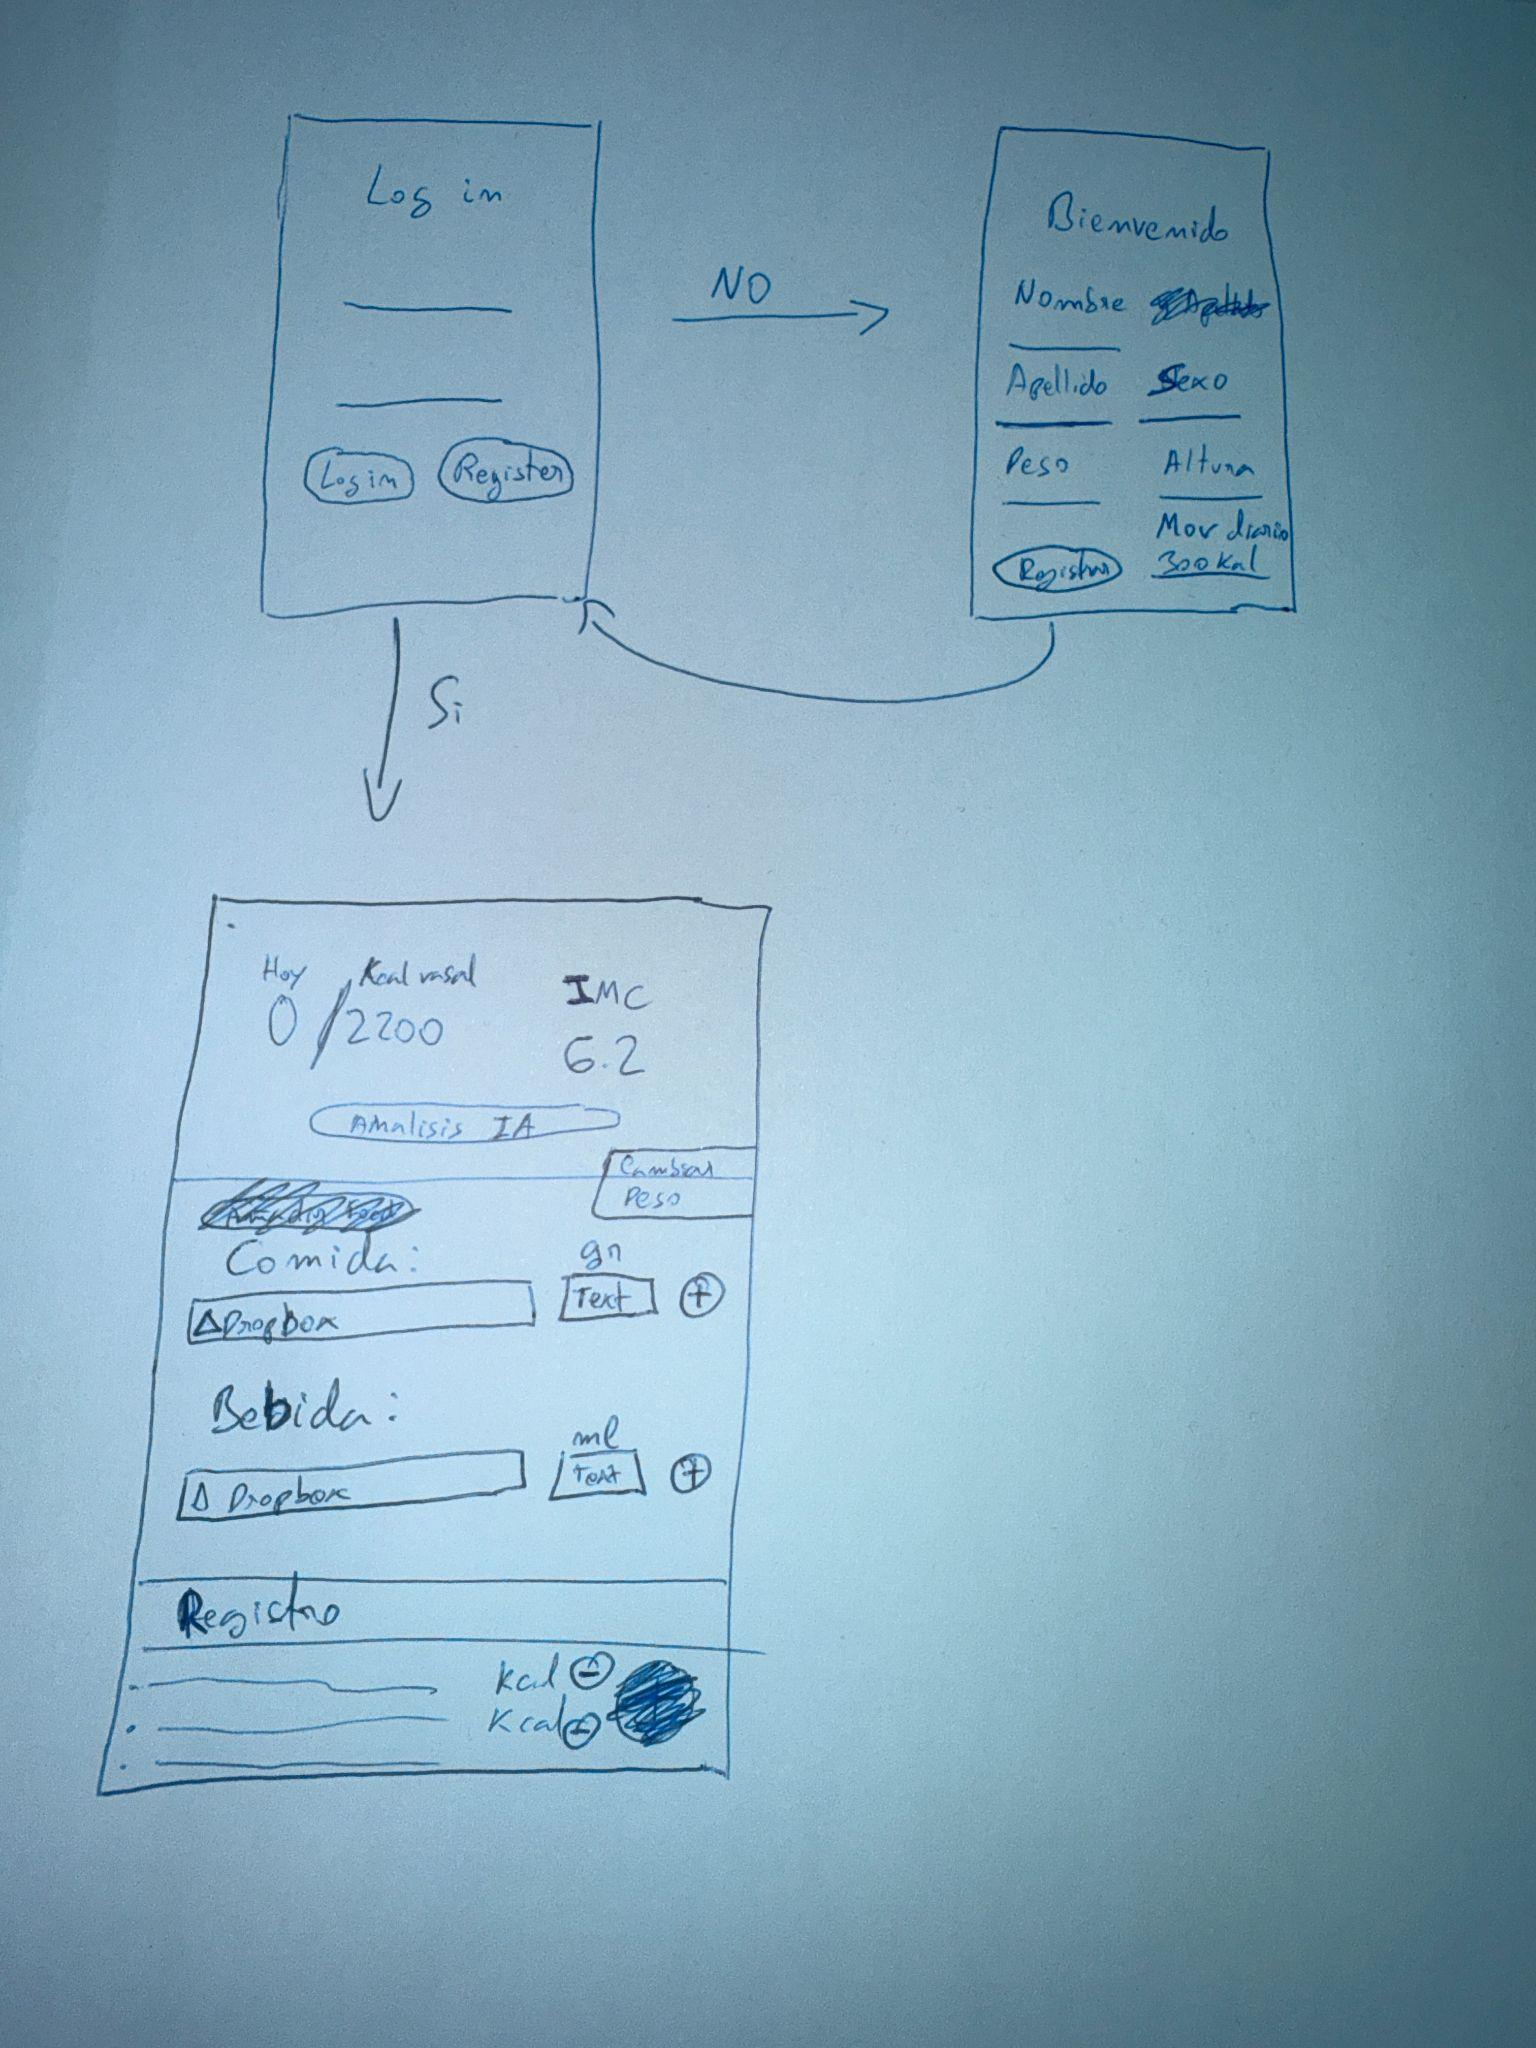 Log in
Log in
Register
NO
Bienvenido
Nombre
Apellido Sexo
Peso Altura
Mov diario
Registrar 300 Kal
Si
Hoy Kcal vasal IMC
0 / 2200 6.2
Analisis IA
Cambiar
Peso
Comida: gr
Dropbox Text +
Bebida: ml
Dropbox Text +
Registro
Kcal -
Kcal -